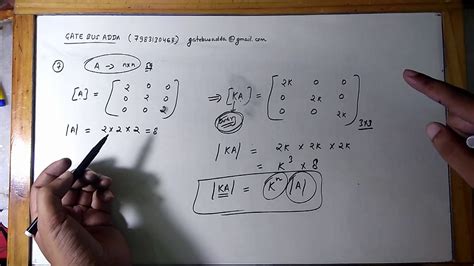 GATE BUS ADDA ( 7983130463 ) gatebusadda@gmail.com
⑦ A → n×n
[A] = [2 0 0; 0 2 0; 0 0 2] ⇒ [KA] = [2K 0 0; 0 2K 0; 0 0 2K] 3×3
|A| = 2×2×2 = 8
|KA| = 2K × 2K × 2K
= K³ × 8
|KA| = Kⁿ |A|